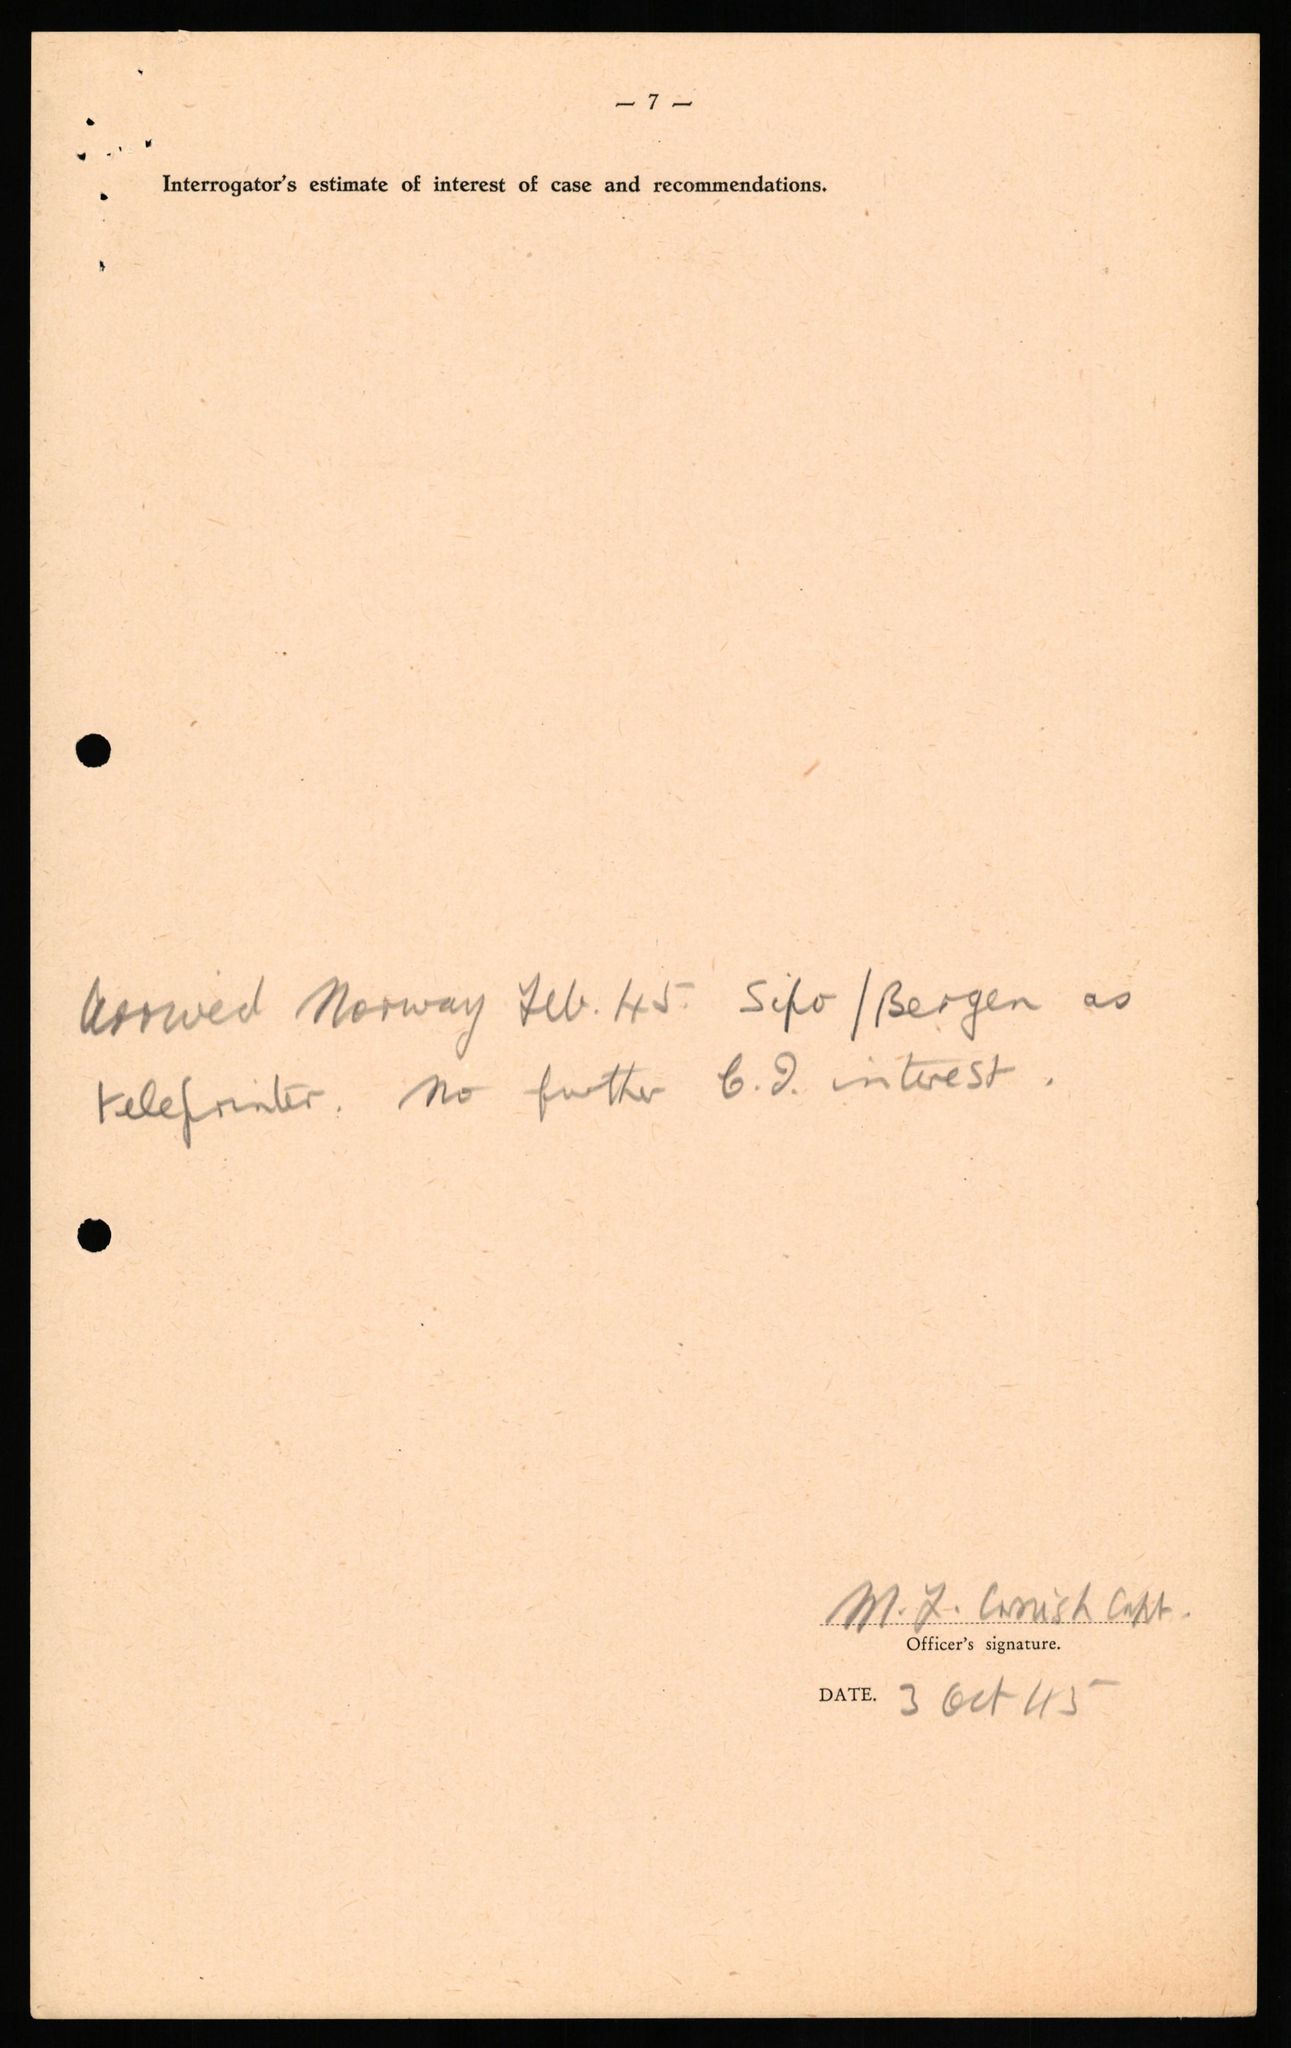 — 7 —
Interrogator's estimate of interest of case and recommendations.
Arrived Norway Feb. 45. Sipo/Bergen as
teleprinter. No further C.I. interest.
M. F. Cornish Capt.
Officer's signature.
DATE. 3 Oct 45